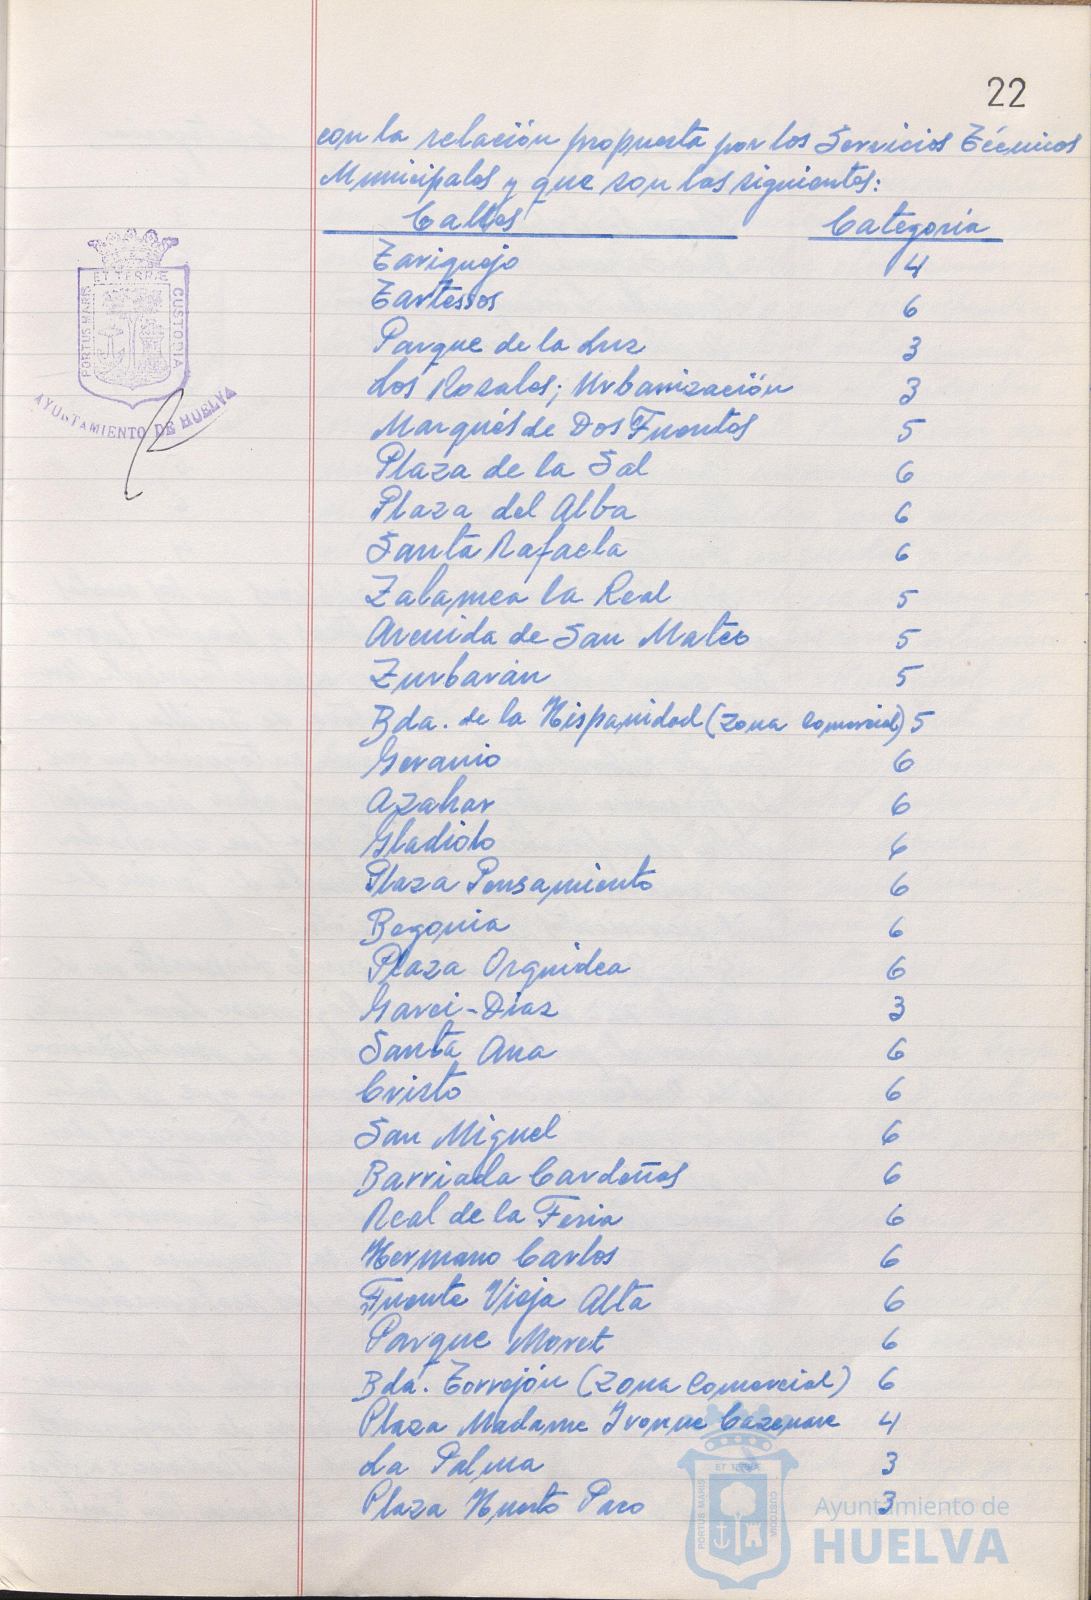 22
con la relación propuesta por los Servicios Técnicos
Municipales y que son las siguientes:
Calles Categoria
Tariquejo 4
Tartessos 6
Parque de la Luz 3
Los Rosales; Urbanización 3
Marqués de Dos Fuentes 5
Plaza de la Sal 6
Plaza del Alba 6
Santa Rafaela 6
Zalamea la Real 5
Avenida de San Mateo 5
Zurbarán 5
Bda. de la Hispanidad (Zona Comercial) 5
Geranio 6
Azahar 6
Gladiolo 6
Plaza Pensamiento 6
Begonia 6
Plaza Orquidea 6
Garci-Díaz 3
Santa Ana 6
Cristo 6
San Miguel 6
Barriada Cardeñas 6
Real de la Feria 6
Hermano Carlos 6
Fuente Vieja Alta 6
Parque Moret 6
Bda. Torrejón (Zona Comercial) 6
Plaza Madame Ivonne Cazenave 4
La Palma 3
Plaza Huerto Paco 3
PORTUS MARIS ET TERRÆ CUSTODIA
AYUNTAMIENTO DE HUELVA
PORTUS MARIS ET TERRÆ CUSTODIA
Ayuntamiento de
HUELVA